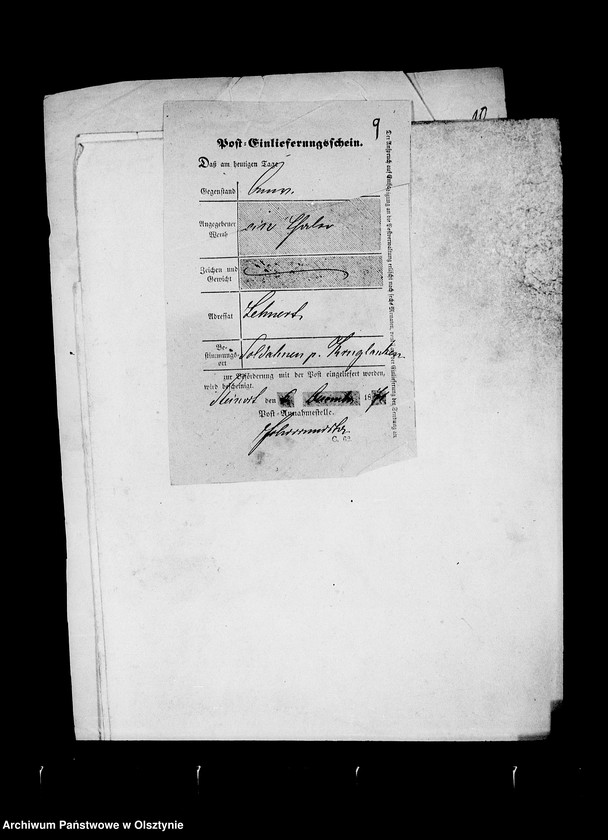 9
10
Post-Einlieferungsschein.
Daß am heutigen Tage
Gegenstand
Angegebener
Werth
eine Thaler
Zeichen und
Gewicht
Adressat
Lehnert
Be-
stimmungs-
ort
Soldahnen p. Kruglanken
zur Beförderung mit der Post eingeliefert worden,
wird bescheinigt.
Steinort den 18
Post-Annahmestelle.
C. 62.
Der Anspruch auf Entschädigung an die Postverwaltung erlischt nach sechs Monaten, vom Tage der Einlieferung der Sendung an
Archiwum Państwowe w Olsztynie